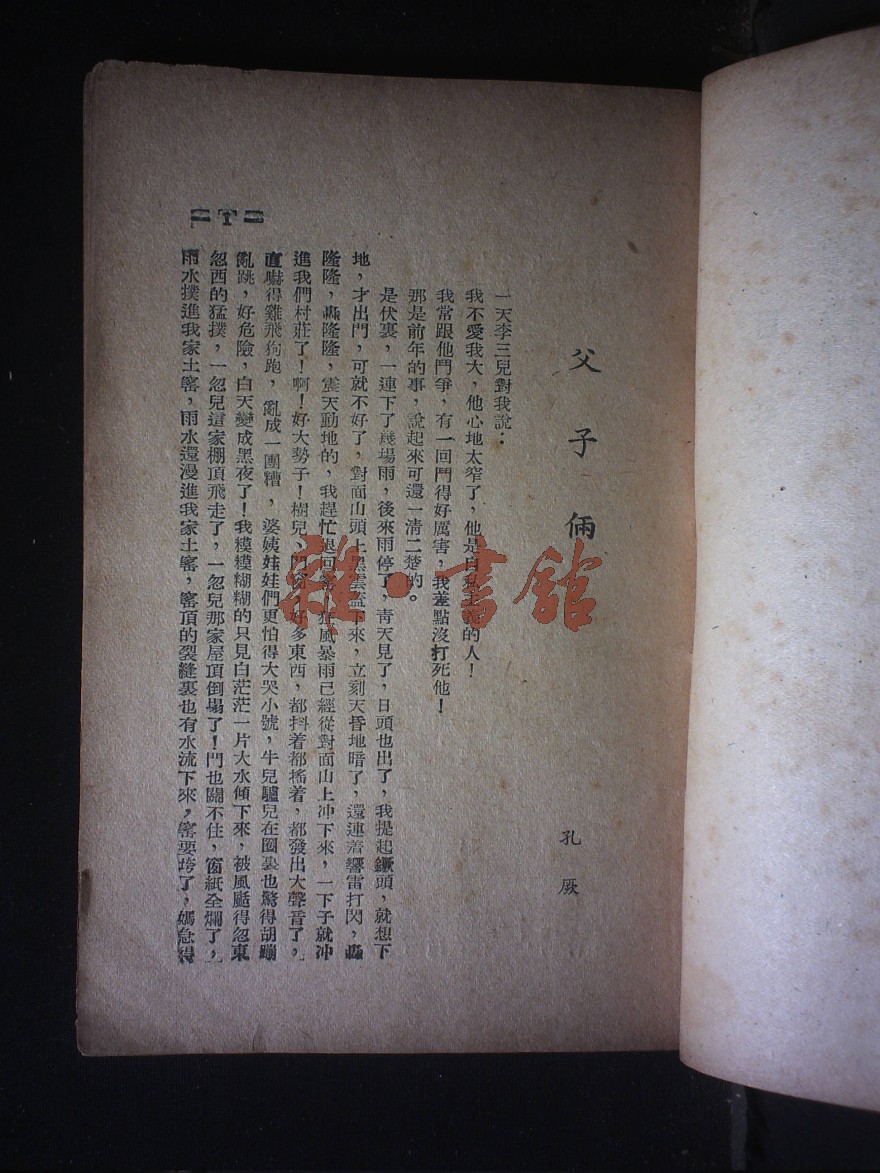 父子倆
孔厥
一天李三兒對我說：
我不愛我大，他心地太窄了，他是自私主義的人！
我常跟他鬥爭，有一回鬥得好厲害，我差點沒打死他！
那是前年的事，說起來可還一清二楚的。
是伏裏，一連下了幾場雨，後來雨停了，青天見了，日頭也出了，我提起鐝頭，就想下
地，才出門，可就不好了，對面山頭上黑雲蓋下來，立刻天昏地暗了，還連着響雷打閃，轟
隆隆，轟隆隆，震天動地的，我趕忙退回窰，狂風暴雨已經從對面山上冲下來，一下子就冲
進我們村莊了！啊！好大勢子！樹兒、門窗、好多東西，都抖着都搖着，都發出大聲音了，
直嚇得雞飛狗跑，亂成一團糟，婆姨娃娃們更怕得大哭小號，牛兒驢兒在圈裏也驚得胡蹦
亂跳，好危險，白天變成黑夜了！我模模糊糊的只見白茫茫一片大水傾下來，被風颳得忽東
忽西的猛撲，一忽兒這家棚頂飛走了，一忽兒那家屋頂倒塌了！門也關不住，窗紙全爛了，
雨水撲進我家土窰，雨水還漫進我家土窰，窰頂的裂縫裏也有水流下來，窰要垮了，媽急得
1
雜·書館